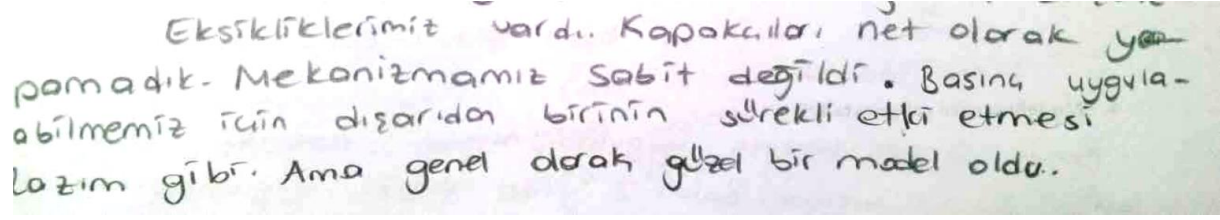 Eksikliklerimiz vardı. Kapakçıları net olarak ya-
pamadık. Mekanizmamız sabit değildi. Basınç uygula-
abilmemiz için dışarıdan birinin sürekli etki etmesi
lazım gibi. Ama genel olarak güzel bir model oldu.